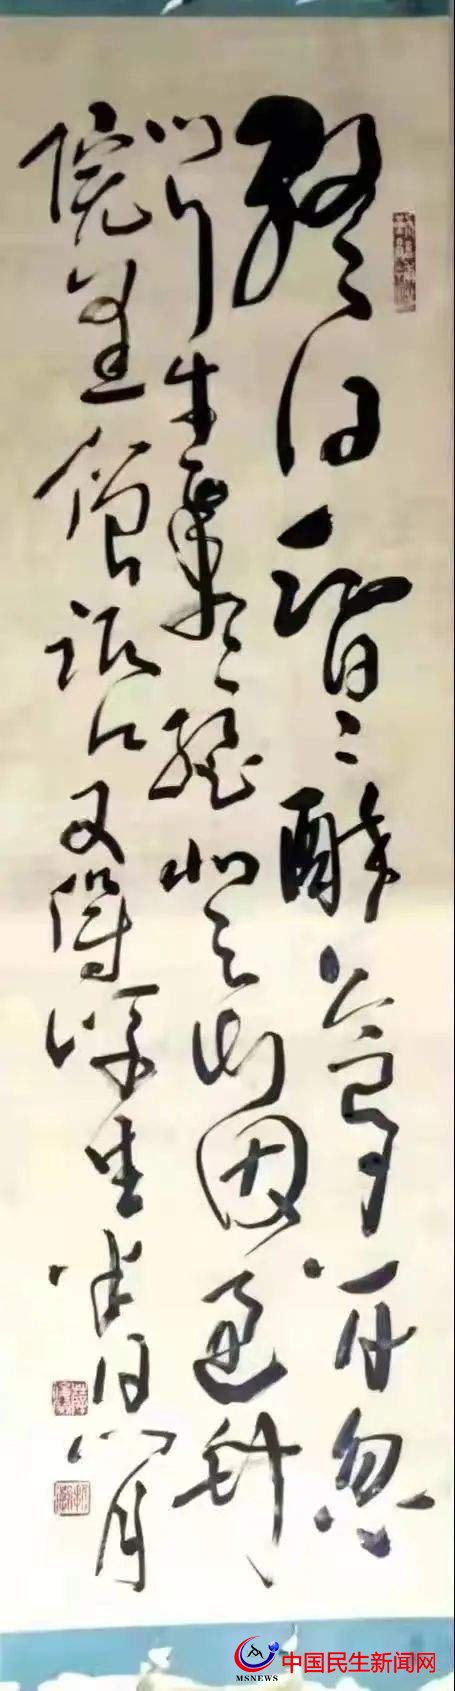 終日昏〻醉夢間忽
聞強登山因過竹
院逢僧話又得浮生半日閒
中国民生新闻网
MSNEWS